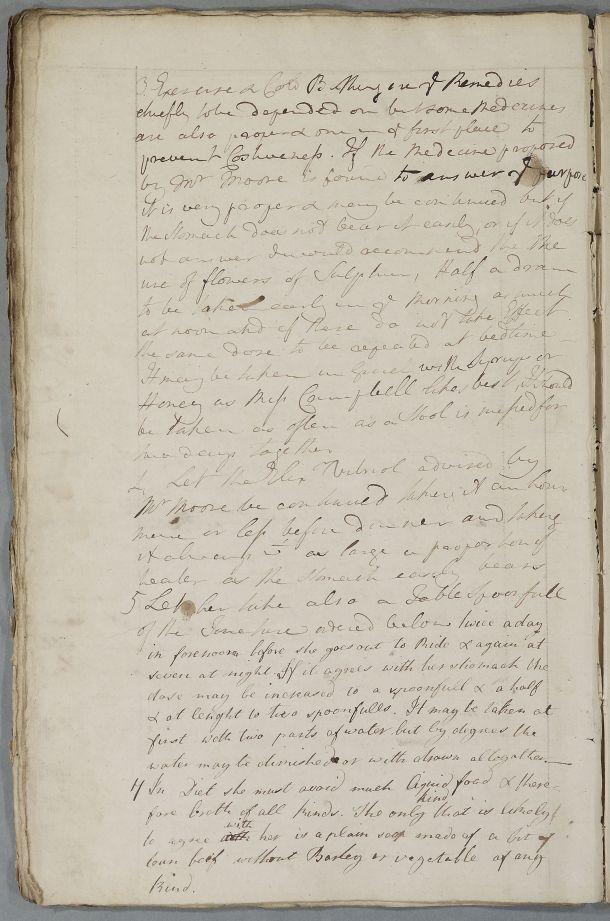 3. Exercise & Cold Bathing are ye Remedies
chiefly to be depended on but some Medecines
are also proper & one in ye first place to
prevent Costiveness. If the Medecine proposed
by Mr Moore is found to answer ye purpose
it is very proper & may be continued but if
the stomach does not bear it easily, or if it does
not answer I would recommend the the
use of flowers of Sulphur, Half a dram
to be taken early in ye Morning as much
at noon and if these do not take Effect
the same dose to be repeated at bedtime
It may be taken in with Syrup or
Honey as Miss Campbell likes best, It should
be taken as often as a Stool is missed for
two days together
4. Let the Elix Vitriol advised by
Mr Moore be continued taking it an hour
more or less before dinner and taking
it always in as large a proportion of
water as the stomach easily bears
5 Let her take also a Table Spoonfull
of the Tincture ordered below twice a day
in forenoon before she goes out to Ride & again at
seven at night. If it agrees with her stomach the
dose may be increased to a spoonfull & a half
& at lenght to two spoonfulls. It may be taken at
first with two parts of water but by degrees the
water may be diminished or with drawn altogether—
4 In Diet she must avoid much liquid food & there-
fore broth of all kinds. The only kind that is likely
to agree with her is a plain soop made of a bit of
lean beef without Barley or vegetable of any
kind.